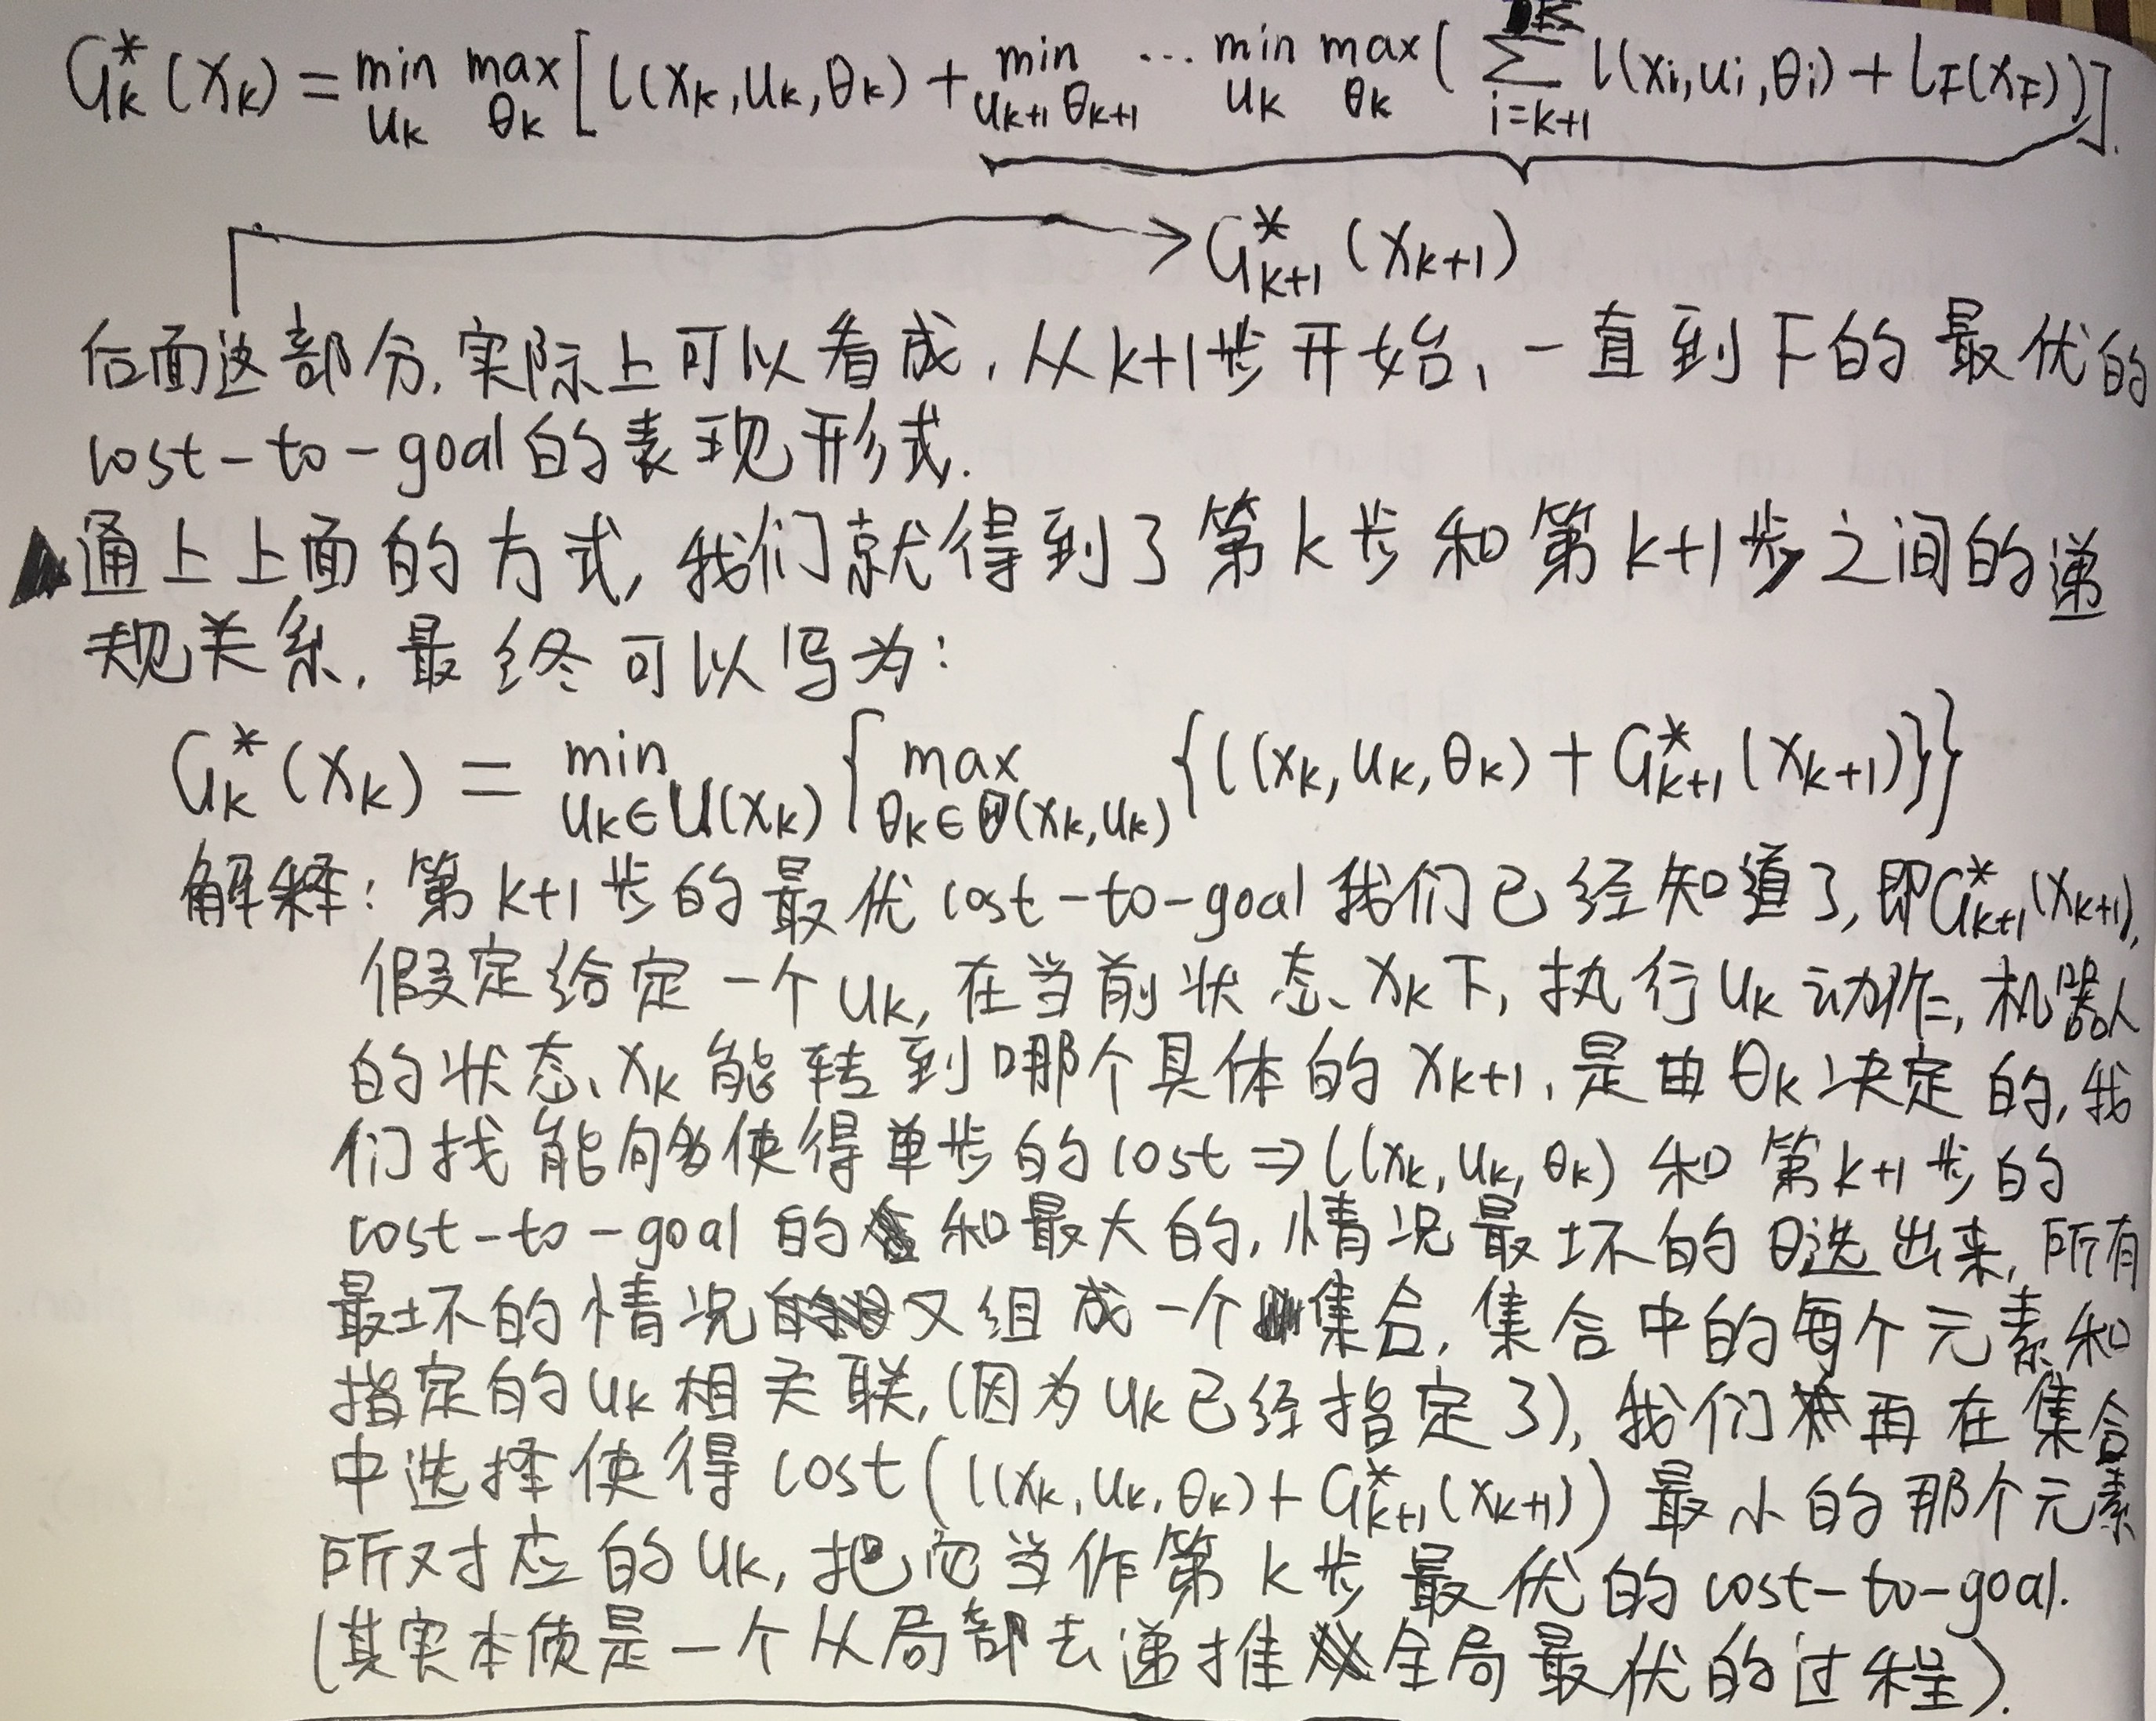 G*k(xk) = min uk max θk [l(xk, uk, θk) + min uk+1 θk+1 ... min uk max θk (∑ i=k+1 K l(xi, ui, θi) + lF(xF))].
G*k+1(xk+1)
后面这部分,实际上可以看成,从k+1步开始、一直到F的最优的
cost-to-goal的表现形式.
通上上面的方式,我们就得到了第k步和第k+1步之间的递
规关系,最终可以写为:
G*k(xk) = min uk∈U(xk) {max θk∈Θ(xk,uk) {l(xk, uk, θk) + G*k+1(xk+1)}}
解释: 第k+1步的最优cost-to-goal我们已经知道了,即G*k+1(xk+1),
假定给定一个uk,在当前状态xk下,执行uk动作,机器人
的状态xk能转到哪个具体的xk+1,是由θk决定的,我
们找能够使得单步的cost⇒l(xk, uk, θk)和第k+1步的
cost-to-goal的和最大的,情况最坏的θ选出来,所有
最坏的情况又组成一个集合,集合中的每个元素和
指定的uk相关联,(因为uk已经指定了),我们再在集合
中选择使得cost(l(xk, uk, θk)+G*k+1(xk+1))最小的那个元素
所对应的uk,把它当作第k步最优的cost-to-goal.
(其实本质是一个从局部去递推全局最优的过程).